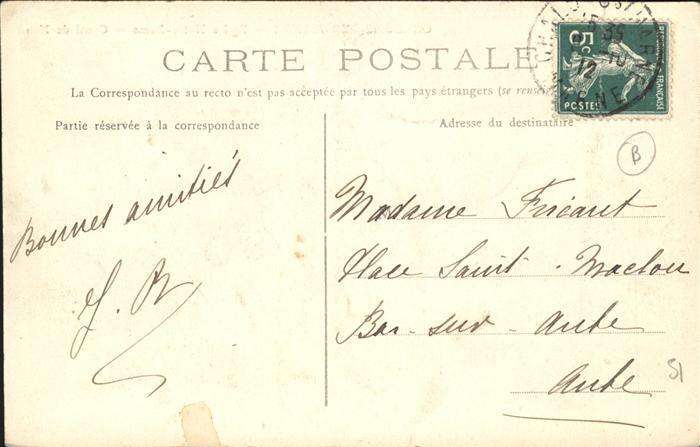 CARTE POSTALE
La Correspondance au recto n'est pas acceptée par tous les pays étrangers (se rense
Partie réservée à la correspondance
Adresse du destinataire
5c
POSTES
B
Bonnes amitiés
Madame Fricaut
Place Saint-Maclou
Bar-sur-Aube
Aube
51